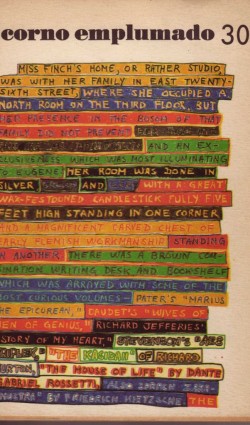 corno emplumado 30
MISS FINCH'S HOME, OR RATHER STUDIO,
WAS WITH HER FAMILY IN EAST TWENTY-
SIXTH STREET, WHERE SHE OCCUPIED A
NORTH ROOM ON THE THIRD FLOOR, BUT
HER PRESENCE IN THE BOSOM OF THAT
FAMILY DID NOT PREVENT
AND AN EX-
CLUSIVENESS WHICH WAS MOST ILLUMINATING
TO EUGENE HER ROOM WAS DONE IN
SILVER AND WITH A GREAT
WAX-FESTOONED CANDLESTICK FULLY FIVE
FEET HIGH STANDING IN ONE CORNER
AND A MAGNIFICENT CARVED CHEST OF
EARLY FLEMISH WORKMANSHIP STANDING
IN ANOTHER THERE WAS A BROWN COM-
BINATION WRITING DESK AND BOOKSHELF
WHICH WAS ARRAYED WITH SOME OF THE
MOST CURIOUS VOLUMES- PATER'S "MARIUS
THE EPICUREAN," DAUDET'S "WIVES OF
MEN OF GENIUS," RICHARD JEFFERIES'
STORY OF MY HEART" STEVENSON'S "AES
TRIPLEX," "THE KASIDAH" OF RICHARD
BURTON, "THE HOUSE OF LIFE" BY DANTE
GABRIEL ROSSETTI, ALSO SPRACH ZARA-
THUSTRA" BY FRIEDRICH NIETZSCHE. THE